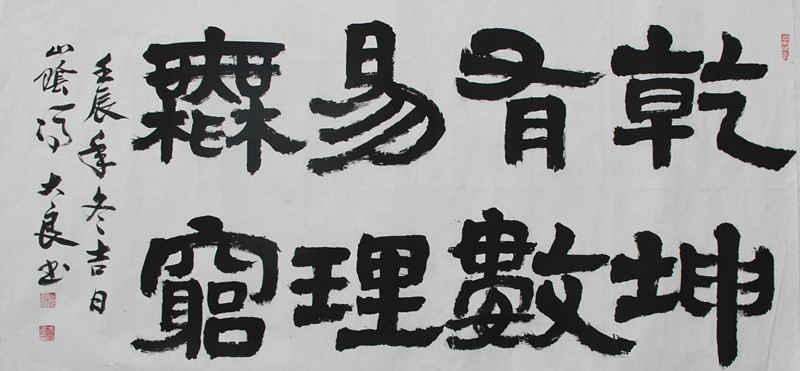 乾坤
有數
易理
無窮
壬辰年冬吉日
山陰馮大良书